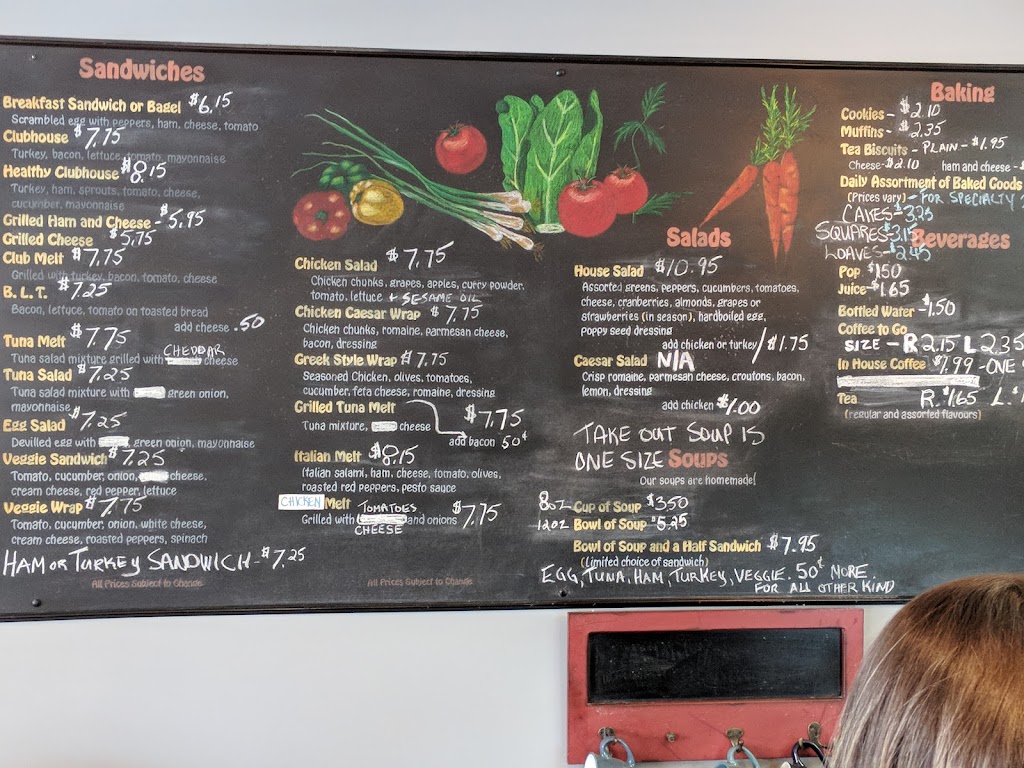 Sandwiches
Breakfast Sandwich or Bagel $6.15
Scrambled egg with peppers, ham, cheese, tomato
Clubhouse $7.75
Turkey, bacon, lettuce, tomato, mayonnaise
Healthy Clubhouse $8.15
Turkey, ham, sprouts, tomato, cheese,
cucumber, mayonnaise
Grilled Ham and Cheese - $5.95
Grilled Cheese $5.75
Club Melt $7.75
Grilled with turkey, bacon, tomato, cheese
B. L. T. $7.25
Bacon, lettuce, tomato on toasted bread
add cheese .50
Tuna Melt $7.75
Tuna salad mixture grilled with CHEDDAR cheese
Tuna Salad $7.25
Tuna salad mixture with green onion,
mayonnaise
Egg Salad $7.25
Devilled egg with green onion, mayonnaise
Veggie Sandwich $7.25
Tomato, cucumber, onion, cheese,
cream cheese, red pepper, lettuce
Veggie Wrap $7.75
Tomato, cucumber, onion, white cheese,
cream cheese, roasted peppers, spinach
HAM or TURKEY SANDWICH - $7.25
All Prices Subject to Change
Chicken Salad $7.75
Chicken chunks, grapes, apples, curry powder,
tomato, lettuce + SESAME OIL
Chicken Caesar Wrap $7.75
Chicken chunks, romaine, parmesan cheese,
bacon, dressing
Greek Style Wrap $7.75
Seasoned Chicken, olives, tomatoes,
cucumber, feta cheese, romaine, dressing
Grilled Tuna Melt $7.75
Tuna mixture, cheese
add bacon 50¢
Italian Melt $8.15
Italian salami, ham, cheese, tomato, olives,
roasted red peppers, pesto sauce
CHICKEN Melt $7.75
Grilled with TOMATOES CHEESE and onions
All Prices Subject to Change
Salads
House Salad $10.95
Assorted greens, peppers, cucumbers, tomatoes,
cheese, cranberries, almonds, grapes or
strawberries (in season), hardboiled egg,
poppy seed dressing
add chicken or turkey / $1.75
Caesar Salad N/A
Crisp romaine, parmesan cheese, croutons, bacon,
lemon, dressing
add chicken $1.00
TAKE OUT SOUP IS
ONE SIZE
Soups
Our soups are homemade!
8oz Cup of Soup $3.50
12oz Bowl of Soup $5.25
Bowl of Soup and a Half Sandwich $7.95
(Limited choice of sandwich)
EGG, TUNA, HAM, TURKEY, VEGGIE. 50¢ MORE
FOR ALL OTHER KIND
Baking
Cookies - $2.10
Muffins - $2.35
Tea Biscuits - PLAIN - $1.95
Cheese - $2.10 ham and cheese -
Daily Assortment of Baked Goods
(Prices vary) - FOR SPECIALTY
CAKES - $3.25
SQUARES - $3.15
LOAVES - $2.45
Beverages
Pop $1.50
Juice - $1.65
Bottled Water - $1.50
Coffee to Go
SIZE - R 2.15 L 2.35
In House Coffee $1.99 - ONE
Tea R. $1.65 L.
(regular and assorted flavours)